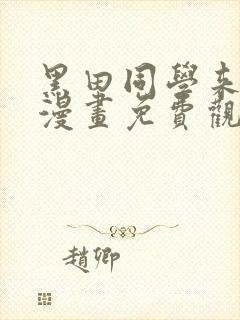 黑田同學來
漫畫免費觀
趙卿